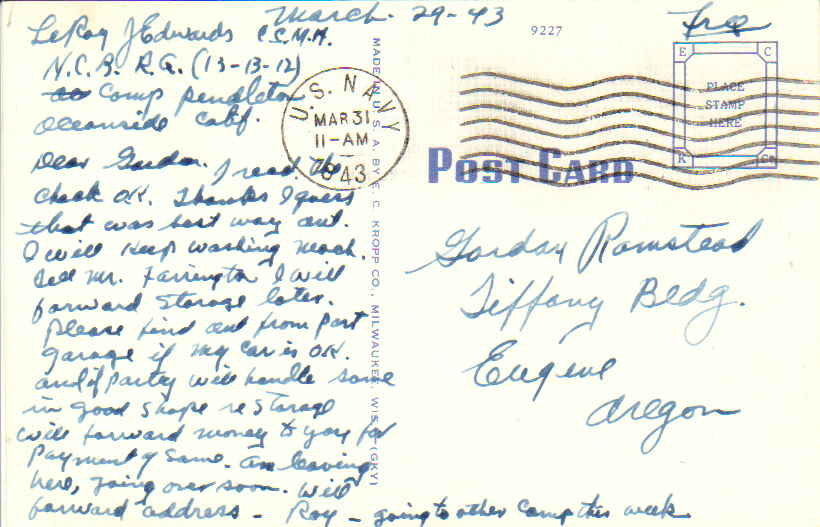 March - 29-43
LeRoy J Edwards C.S.M.M.
N.C.B. R.G. (13-13-12)
Camp Pendleton
Oceanside Calif.
Dear Gordon. I recd the
Check OK. Thanks I guess
that was best way out.
I will keep washing mach.
Tell Mr. Farrington I will
forward storage later.
Please find out from Port
garage if my car is OK.
and if party will handle same
in good shape re storage
will forward money to you for
Payment of same. am leaving
here, going over soon. Will
forward address - Roy - going to other Camp this week
MADE IN U.S.A. BY E. C. KROPP CO., MILWAUKEE, WIS. (GKY)
9227
Free
U.S. NAVY
MAR 31
11-AM
1943
E C
PLACE
STAMP
HERE
K Co
POST CARD
Gordon Ramstead
Tiffany Bldg.
Eugene
Oregon